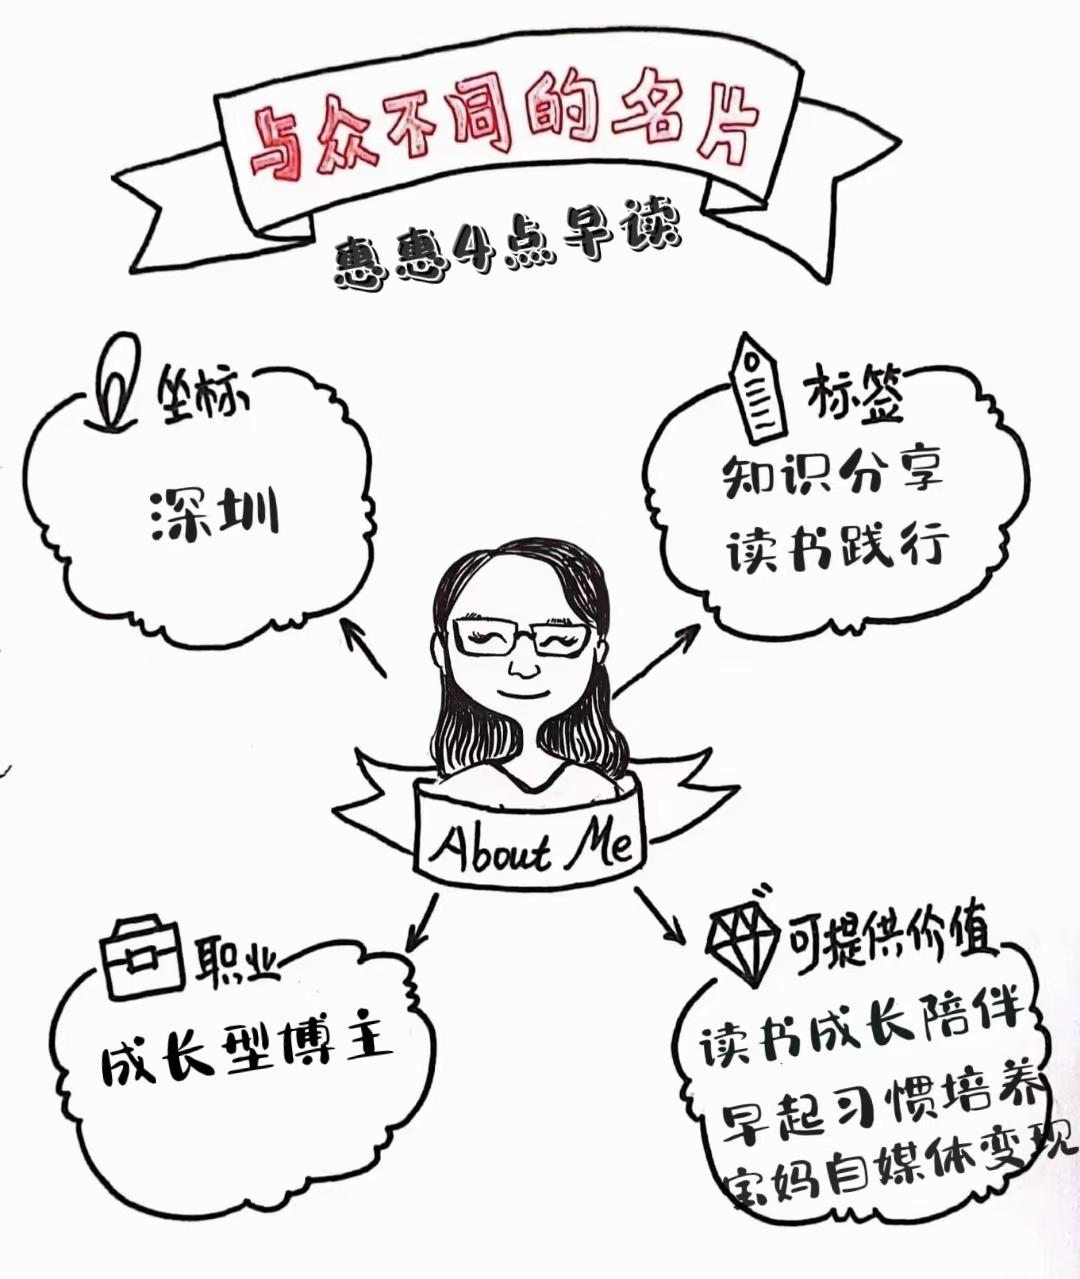 与众不同的名片
惠惠4点早读
坐标
深圳
标签
知识分享
读书践行
About Me
职业
成长型博主
可提供价值
读书成长陪伴
早起习惯培养
宝妈自媒体变现